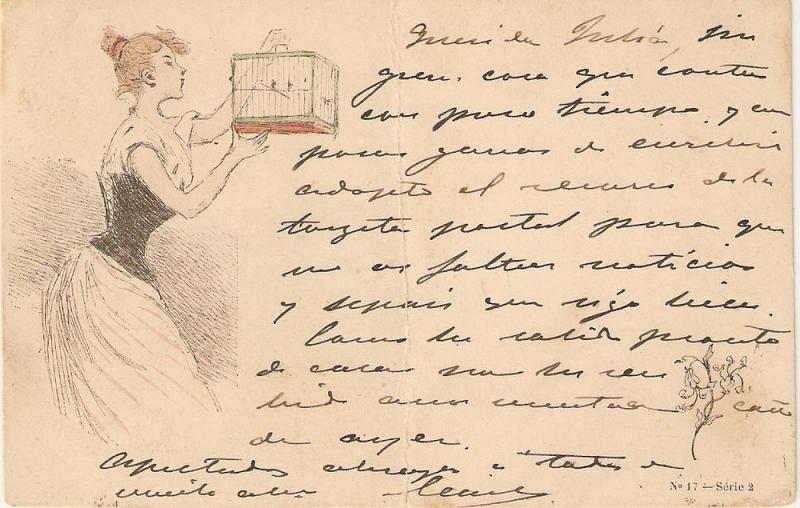 Querida Julia, sin
gran cosa que contar
con poco tiempo y con
pocas ganas de escribir
adopto el recurso de la
targeta postal para que
no os falten noticias
y sepais que sigo bien.
Como he salido pronto
de casa no he reci
bido aun vuestra carta
de ayer.
Apretados abrazos a todos
Nº 17 — Série 2